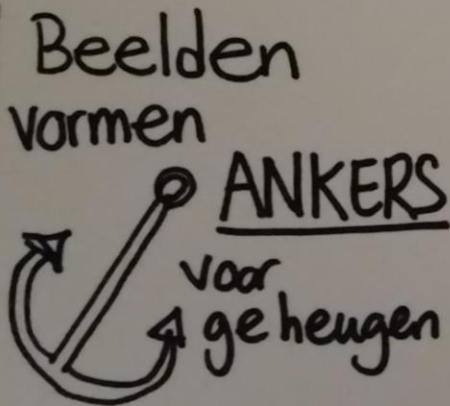 Beelden
vormen
ANKERS
voor
geheugen